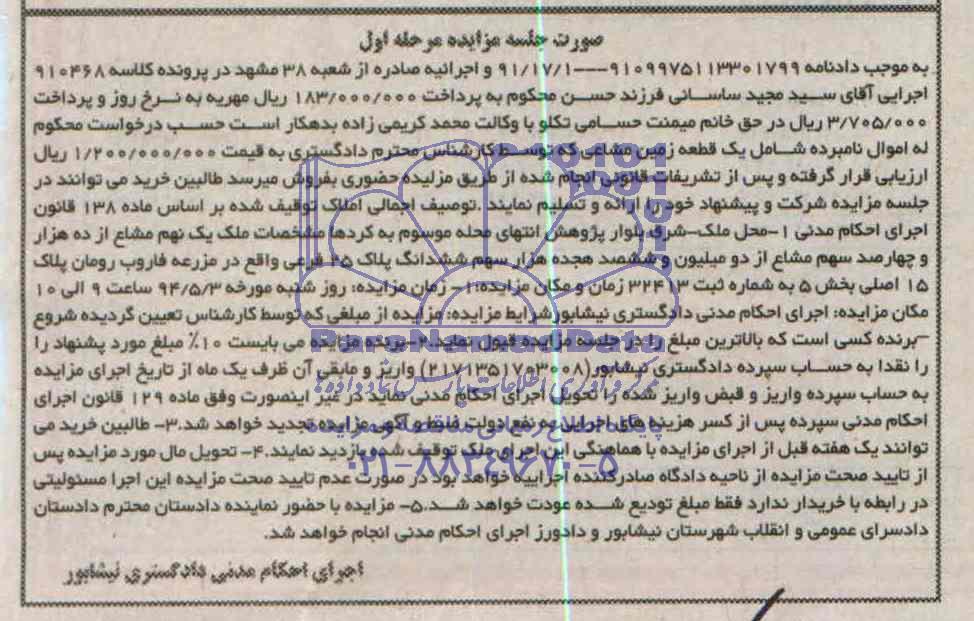 صورت جلسه مزایده مرحله اول
به موجب دادنامه ۹۱۰۹۹۷۵۱۱۳۳۰۱۷۹۹---۹۱/۱۷/۱ و اجرائیه صادره از شعبه ۳۸ مشهد در پرونده کلاسه ۹۱۰۴۶۸
اجرایی آقای سید مجید ساسانی فرزند حسن محکوم به پرداخت ۱۸۳/۰۰۰/۰۰۰ ریال مهریه به نرخ روز و پرداخت
۳/۷۰۵/۰۰۰ ریال در حق خانم میمنت حسامی تکلو با وکالت محمد کریمی زاده بدهکار است حسب درخواست محکوم
له اموال نامبرده شامل یک قطعه زمین مشاعی که توسط کارشناس محترم دادگستری به قیمت ۱/۲۰۰/۰۰۰/۰۰۰ ریال
ارزیابی قرار گرفته و پس از تشریفات قانونی انجام شده از طریق مزلیده حضوری بفروش میرسد طالبین خرید می توانند در
جلسه مزایده شرکت و پیشنهاد خود را ارائه و تسلیم نمایند .توصیف اجمالی املاک توقیف شده بر اساس ماده ۱۳۸ قانون
اجرای احکام مدنی ۱-محل ملک-شرق بلوار پژوهش انتهای محله موسوم به کردها مشخصات ملک یک نهم مشاع از ده هزار
و چهارصد سهم مشاع از دو میلیون و ششصد هجده هزار سهم ششدانگ پلاک ۲۵ فرعی واقع در مزرعه فاروب رومان پلاک
۱۵ اصلی بخش ۵ به شماره ثبت ۳۲۴۱۳ زمان و مکان مزایده:۱- زمان مزایده: روز شنبه مورخه ۹۴/۵/۳ ساعت ۹ الی ۱۰
مکان مزایده: اجرای احکام مدنی دادگستری نیشابورشرایط مزایده: مزایده از مبلغی که توسط کارشناس تعیین گردیده شروع
-برنده کسی است که بالاترین مبلغ را در جلسه مزایده قبول نماید.۲-برنده مزایده می بایست ۱۰٪ مبلغ مورد پشنهاد را
را نقدا به حساب سپرده دادگستری نیشابور(۲۱۷۱۳۵۱۷۰۳۰۰۸) واریز و مابقی آن ظرف یک ماه از تاریخ اجرای مزایده
به حساب سپرده واریز و قبض واریز شده را تحویل اجرای احکام مدنی نماید در غیر اینصورت وفق ماده ۱۲۹ قانون اجرای
احکام مدنی سپرده پس از کسر هزینه های اجرایی به نفع دولت ضبط و آگهی مزایده تجدید خواهد شد.۳- طالبین خرید می
توانند یک هفته قبل از اجرای مزایده با هماهنگی این اجرای ملک توقیف شده بازدید نمایند.۴- تحویل مال مورد مزایده پس
از تایید صحت مزایده از ناحیه دادگاه صادرکننده اجراییه خواهد بود در صورت عدم تایید صحت مزایده این اجرا مسئولیتی
در رابطه با خریدار ندارد فقط مبلغ تودیع شده عودت خواهد شد.۵- مزایده با حضور نماینده دادستان محترم دادستان
دادسرای عمومی و انقلاب شهرستان نیشابور و دادورز اجرای احکام مدنی انجام خواهد شد.
اجرای احکام مدنی دادگستری نیشابور
ParsNamadData
مرکز فرآوری اطلاعات پارس نماد داده ها
پایگاه اطلاع رسانی مناقصه و مزایده
۰۲۱-۸۸۳۴۹۶۷۰-۵